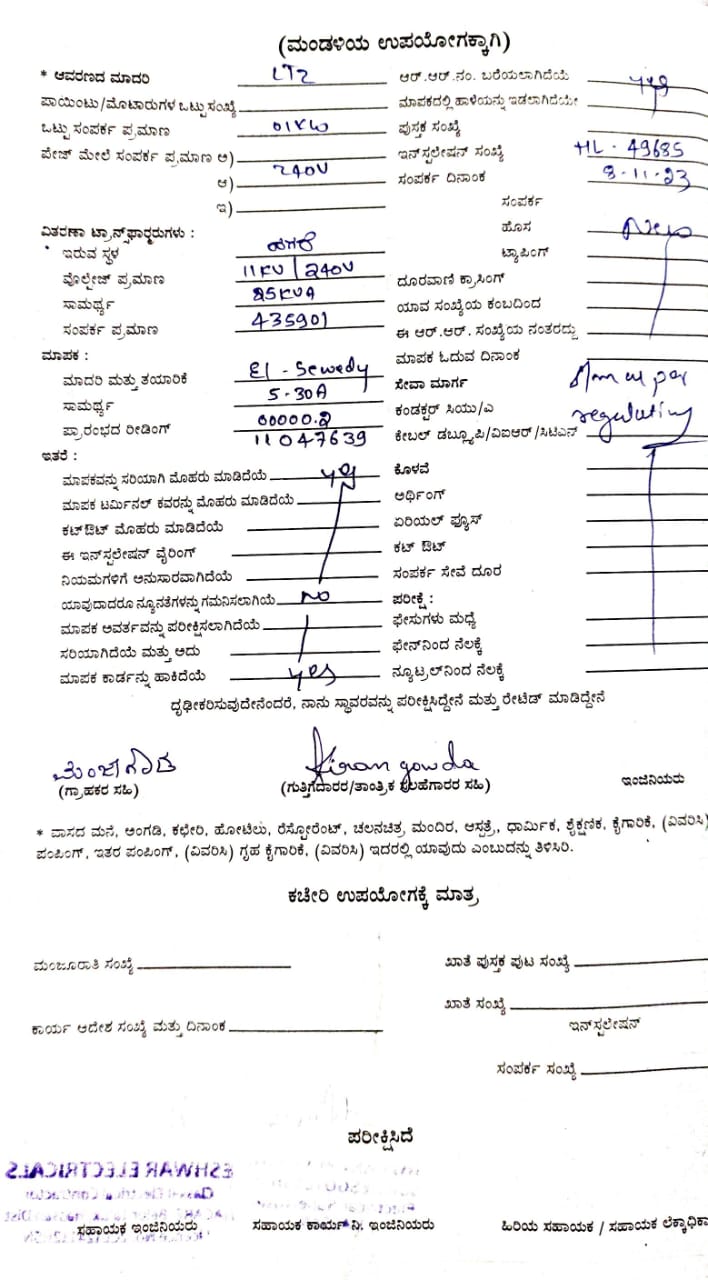 (ಮಂಡಳಿಯ ಉಪಯೋಗಕ್ಕಾಗಿ)
* ಆವರಣದ ಮಾದರಿ LT2
ಪಾಯಿಂಟು/ಮೊಟಾರುಗಳ ಒಟ್ಟು ಸಂಖ್ಯೆ
ಒಟ್ಟು ಸಂಪರ್ಕ ಪ್ರಮಾಣ 01KW
ಪೇಜ್ ಮೇಲೆ ಸಂಪರ್ಕ ಪ್ರಮಾಣ ಅ)
ಆ) 240V
ಇ)
ವಿತರಣಾ ಟ್ರಾನ್ಸ್‌ಫಾರ್ಮರುಗಳು :
ಇರುವ ಸ್ಥಳ ಹಗರೆ
ವೊಲ್ಟೇಜ್ ಪ್ರಮಾಣ 11KV / 240V
ಸಾಮರ್ಥ್ಯ 25KVA
ಸಂಪರ್ಕ ಪ್ರಮಾಣ 435901
ಮಾಪಕ :
ಮಾದರಿ ಮತ್ತು ತಯಾರಿಕೆ El - Sewedy
ಸಾಮರ್ಥ್ಯ 5-30A
ಪ್ರಾರಂಭದ ರೀಡಿಂಗ್ 00000.2
11047639
ಇತರೆ :
ಮಾಪಕವನ್ನು ಸರಿಯಾಗಿ ಮೊಹರು ಮಾಡಿದೆಯೆ yes
ಮಾಪಕ ಟರ್ಮಿನಲ್ ಕವರನ್ನು ಮೊಹರು ಮಾಡಿದೆಯೆ
ಕಟ್‌ಔಟ್ ಮೊಹರು ಮಾಡಿದೆಯೆ
ಈ ಇನ್‌ಸ್ಟಲೇಷನ್ ವೈರಿಂಗ್
ನಿಯಮಗಳಿಗೆ ಅನುಸಾರವಾಗಿದೆಯೆ
ಯಾವುದಾದರೂ ನ್ಯೂನತೆಗಳನ್ನು ಗಮನಿಸಲಾಗಿಯೆ NO
ಮಾಪಕ ಅವರ್ತವನ್ನು ಪರೀಕ್ಷಿಸಲಾಗಿದೆಯೆ
ಸರಿಯಾಗಿದೆಯೆ ಮತ್ತು ಅದು
ಮಾಪಕ ಕಾರ್ಡನ್ನು ಹಾಕಿದೆಯೆ yes
ಆರ್.ಆರ್.ನಂ. ಬರೆಯಲಾಗಿದೆಯೆ yes
ಮಾಪಕದಲ್ಲಿ ಹಾಳೆಯನ್ನು ಇಡಲಾಗಿದೆಯೇ
ಪುಸ್ತಕ ಸಂಖ್ಯೆ
ಇನ್‌ಸ್ಟಲೇಷನ್ ಸಂಖ್ಯೆ HL - 49685
ಸಂಪರ್ಕ ದಿನಾಂಕ 8-11-23
ಸಂಪರ್ಕ
ಹೊಸ New
ಟ್ಯಾಪಿಂಗ್
ದೂರವಾಣಿ ಕ್ರಾಸಿಂಗ್
ಯಾವ ಸಂಖ್ಯೆಯ ಕಂಬದಿಂದ
ಈ ಆರ್.ಆರ್. ಸಂಖ್ಯೆಯ ನಂತರದ್ದು
ಮಾಪಕ ಓದುವ ದಿನಾಂಕ
ಸೇವಾ ಮಾರ್ಗ
ಕಂಡಕ್ಟರ್ ಸಿಯು/ಎ
ಕೇಬಲ್ ಡಬ್ಲ್ಯೂಪಿ/ವಿಐಆರ್/ಸಿಟಿಎಸ್
ಕೊಳವೆ
ಅರ್ಥಿಂಗ್
ಏರಿಯಲ್ ಫ್ಯೂಸ್
ಕಟ್ ಔಟ್
ಸಂಪರ್ಕ ಸೇವೆ ದೂರ
ಪರೀಕ್ಷೆ :
ಫೇಸುಗಳು ಮಧ್ಯೆ
ಫೇಸ್‌ನಿಂದ ನೆಲಕ್ಕೆ
ನ್ಯೂಟ್ರಲ್‌ನಿಂದ ನೆಲಕ್ಕೆ
ದೃಢೀಕರಿಸುವುದೇನೆಂದರೆ, ನಾನು ಸ್ಥಾವರವನ್ನು ಪರೀಕ್ಷಿಸಿದ್ದೇನೆ ಮತ್ತು ರೇಟೆಡ್ ಮಾಡಿದ್ದೇನೆ
ಮಂಜೇಗೌಡ Kiran gowda
(ಗ್ರಾಹಕರ ಸಹಿ) (ಗುತ್ತಿಗೆದಾರರ/ತಾಂತ್ರಿಕ ಸಲಹೆಗಾರರ ಸಹಿ) ಇಂಜಿನಿಯರು
* ವಾಸದ ಮನೆ, ಅಂಗಡಿ, ಕಛೇರಿ, ಹೋಟೆಲು, ರೆಸ್ಟೋರೆಂಟ್, ಚಲನಚಿತ್ರ ಮಂದಿರ, ಆಸ್ಪತ್ರೆ, ಧಾರ್ಮಿಕ, ಶೈಕ್ಷಣಿಕ, ಕೈಗಾರಿಕೆ, (ವಿವರಿಸಿ)
ಪಂಪಿಂಗ್, ಇತರ ಪಂಪಿಂಗ್, (ವಿವರಿಸಿ) ಗೃಹ ಕೈಗಾರಿಕೆ, (ವಿವರಿಸಿ) ಇದರಲ್ಲಿ ಯಾವುದು ಎಂಬುದನ್ನು ತಿಳಿಸಿರಿ.
ಕಚೇರಿ ಉಪಯೋಗಕ್ಕೆ ಮಾತ್ರ
ಮಂಜೂರಾತಿ ಸಂಖ್ಯೆ ಖಾತೆ ಪುಸ್ತಕ ಪುಟ ಸಂಖ್ಯೆ
ಖಾತೆ ಸಂಖ್ಯೆ
ಕಾರ್ಯ ಆದೇಶ ಸಂಖ್ಯೆ ಮತ್ತು ದಿನಾಂಕ ಇನ್‌ಸ್ಟಲೇಷನ್
ಸಂಪರ್ಕ ಸಂಖ್ಯೆ
ಪರೀಕ್ಷಿಸಿದೆ
ESHWAR ELECTRICALS
ಸಹಾಯಕ ಇಂಜಿನಿಯರು ಸಹಾಯಕ ಕಾರ್ಯ ನಿ. ಇಂಜಿನಿಯರು ಹಿರಿಯ ಸಹಾಯಕ / ಸಹಾಯಕ ಲೆಕ್ಕಾಧಿಕಾ